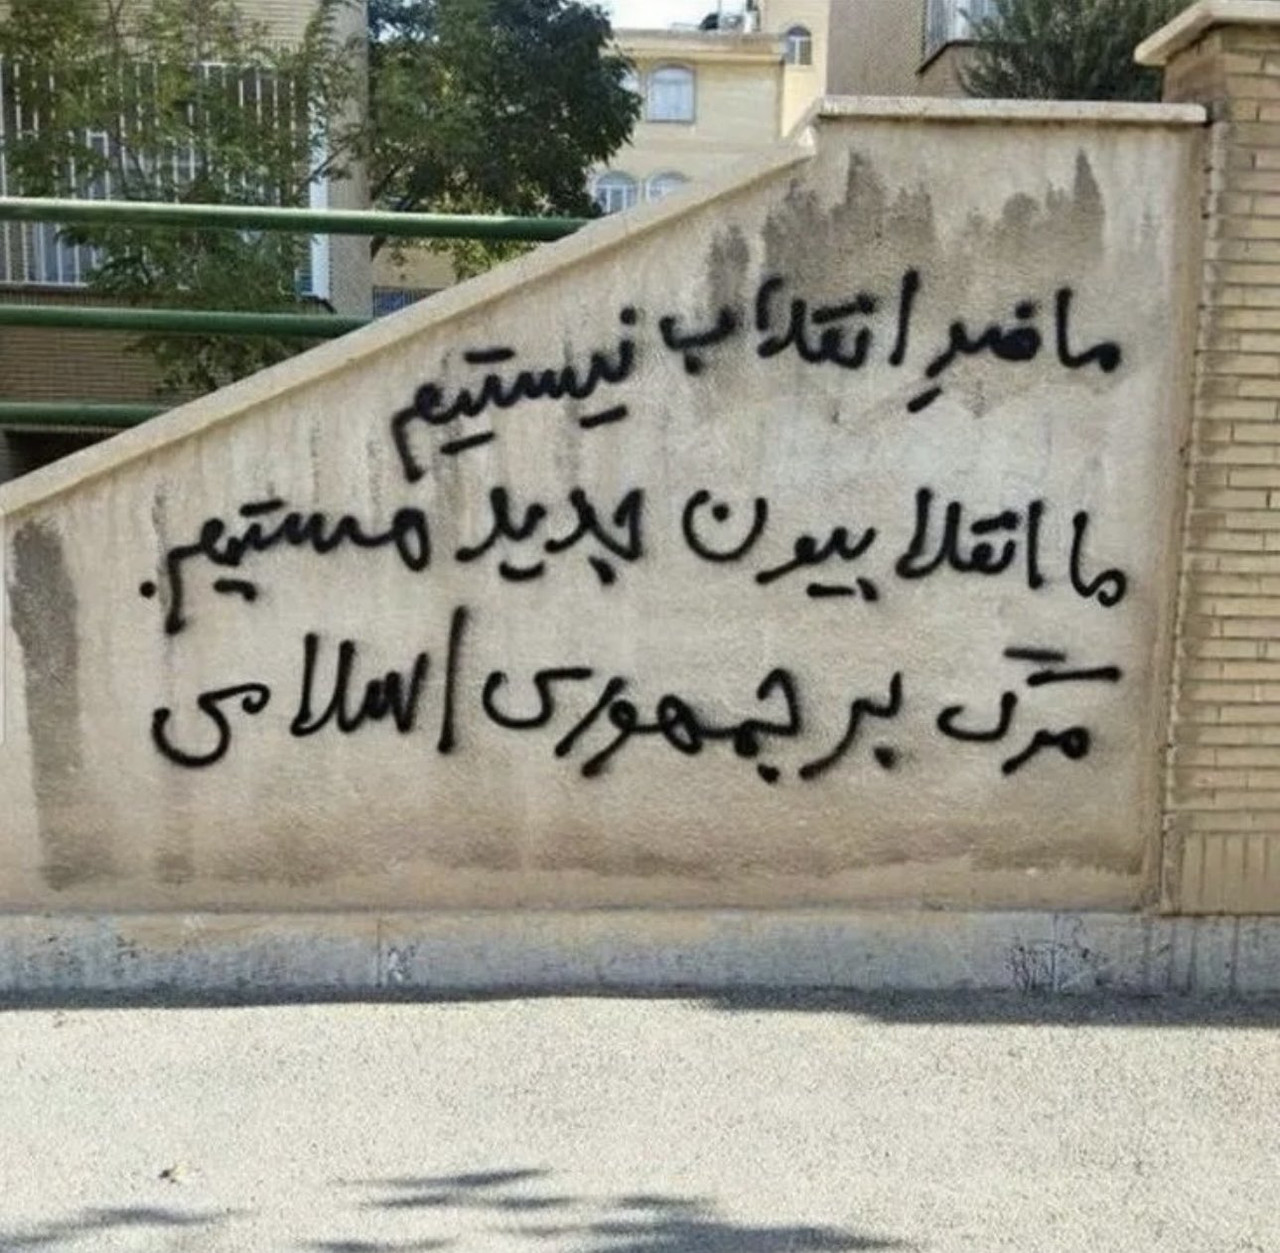 ما ضدِ انقلاب نیستیم
ما انقلابیون جدید هستیم.
مرگ بر جمهوری اسلامی